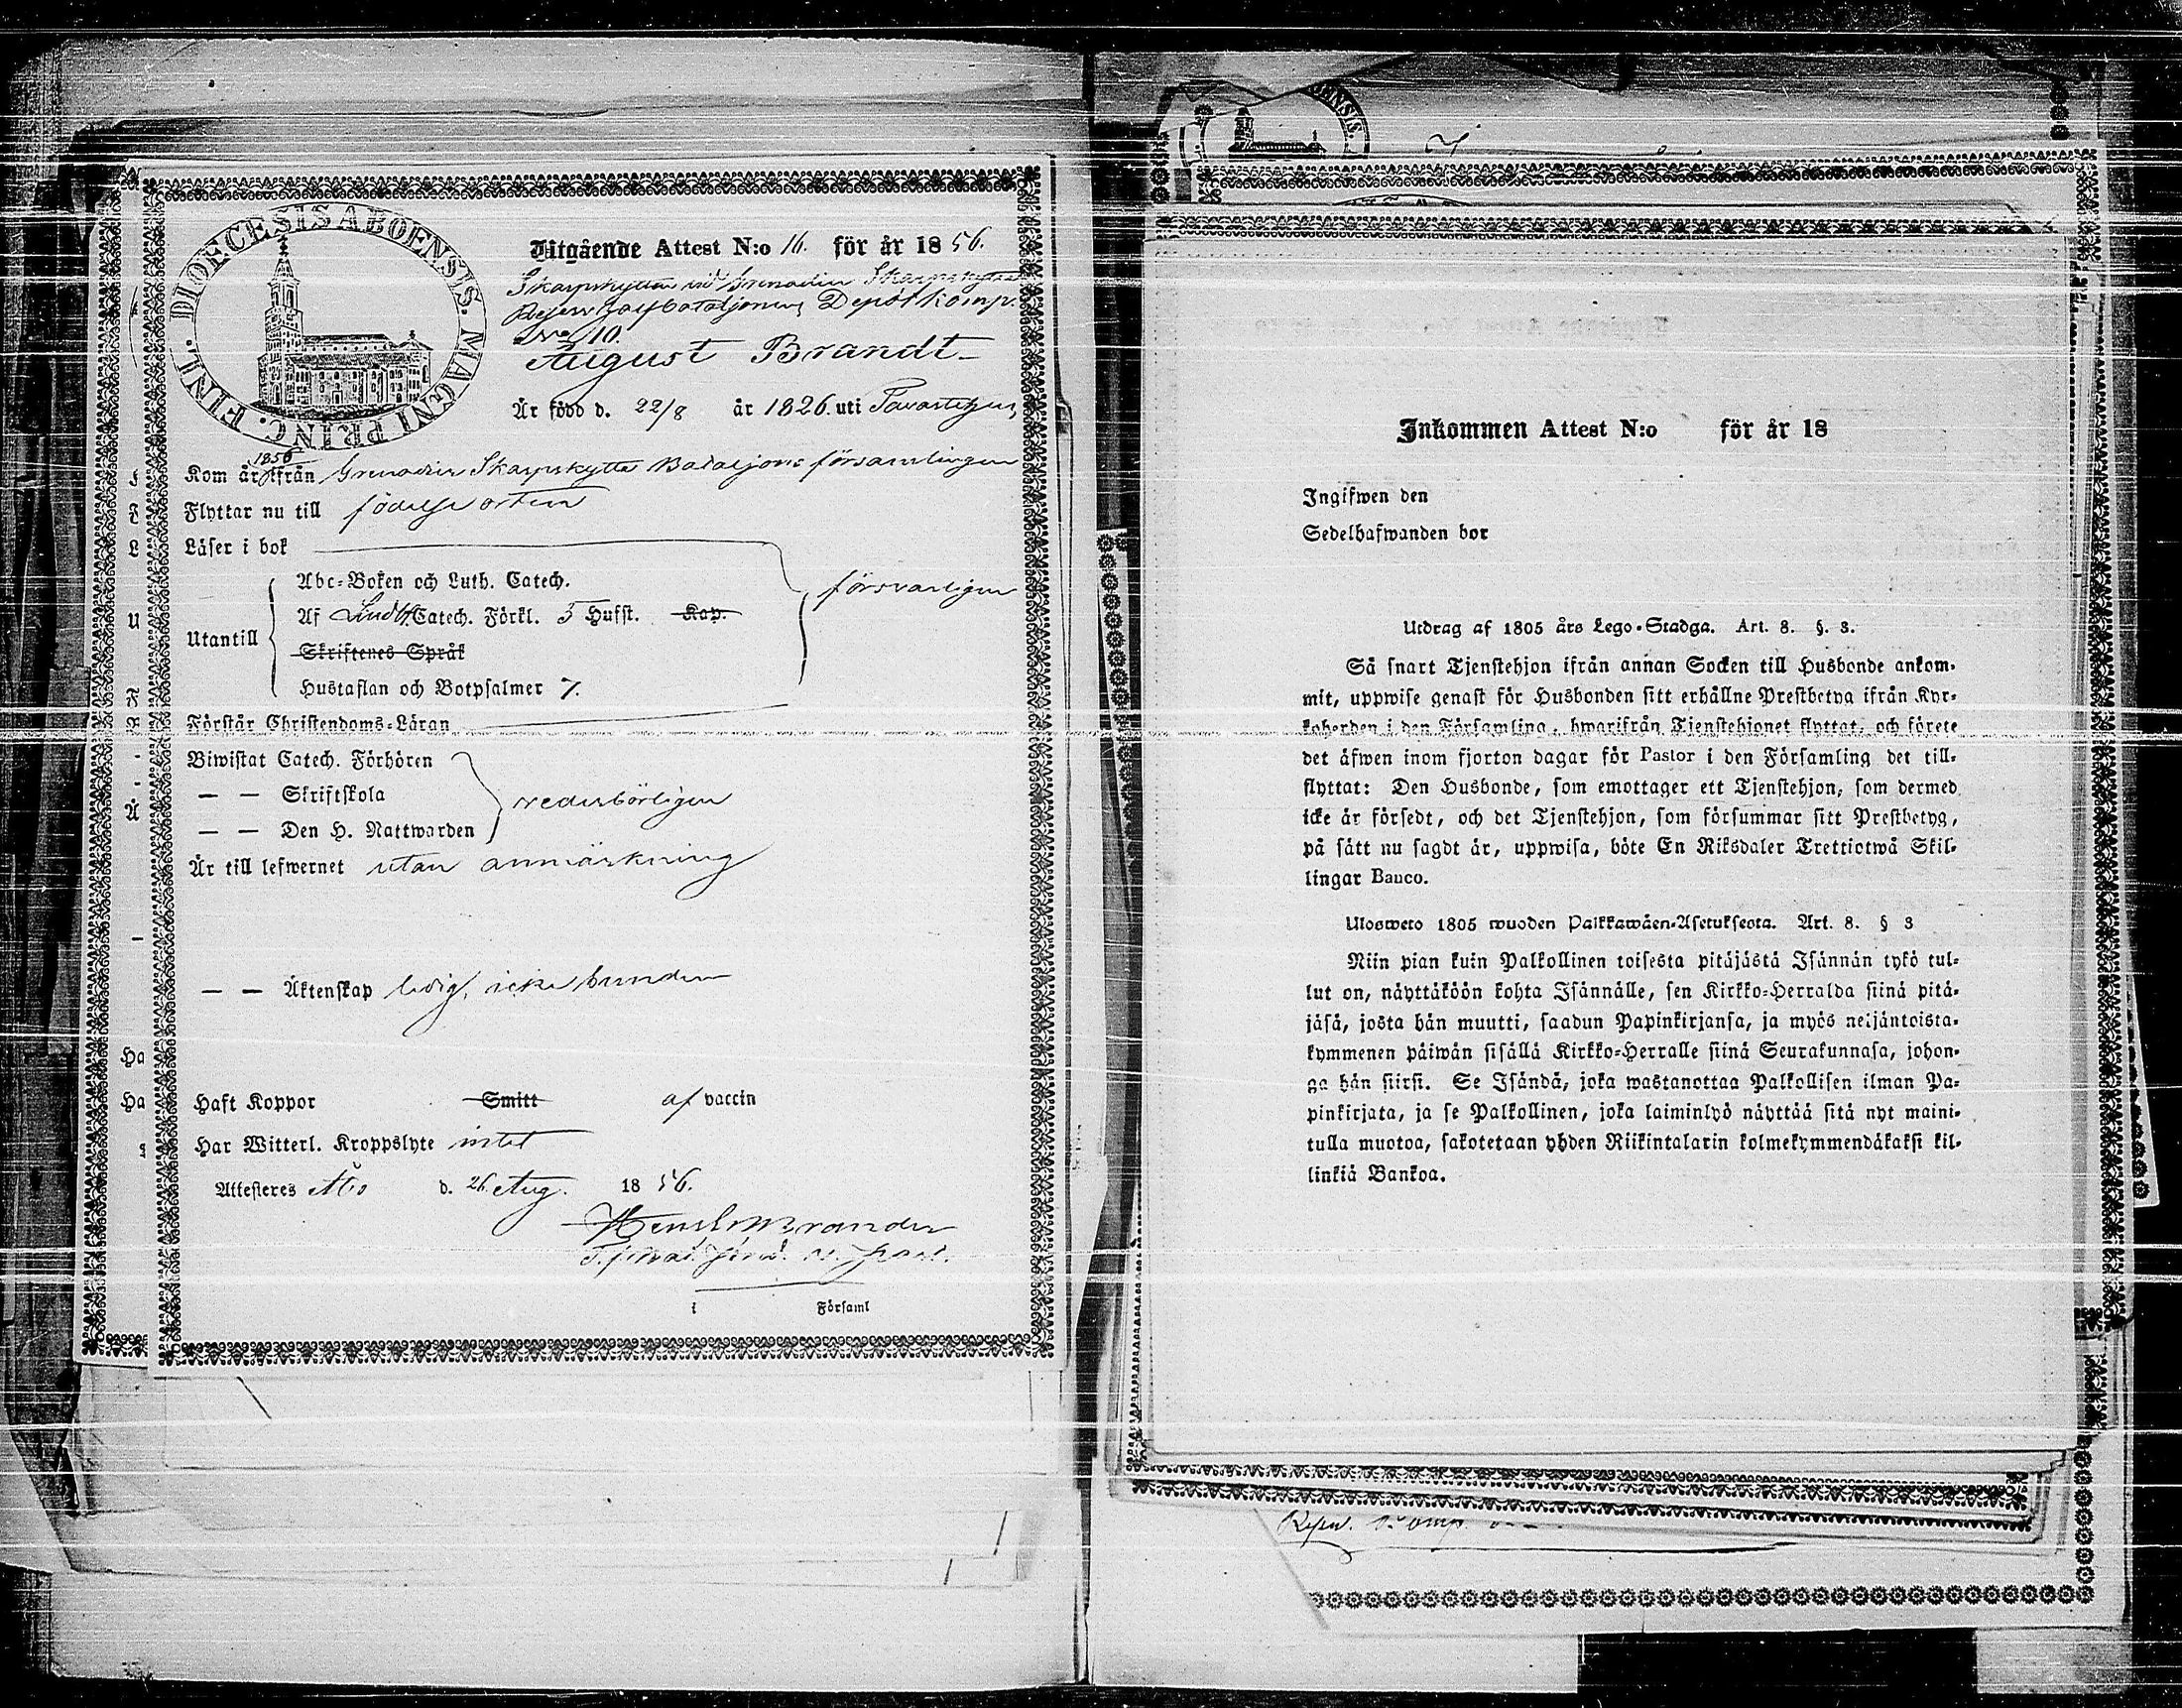 DIOECESIS ABOENSIS. MAGNI PRINC. FINL.
Utgående Attest N:o 16. för år 1856.
Skarpskytten vid Grenadier Skarpskytte
Reserv halfbataljonens Depôt komp.
No 10.
August Brandt
Är född d. 22/8 år 1826. uti Tavastehus
1856
Kom år ifrån Grenadier Skarpskytte Bataljons församlingen
Flyttar nu till födelse orten
Läser i bok
Abc-Boken och Luth. Catech.
försvarligen
Af Catech. Förkl. 5 Hufst. Kap.
Utantill
Skriftenes Språk
Hustaflan och Botpsalmer 7.
Förstår Christendoms-Läran
Biwistat Catech. Förhören
— — Skriftskola
vederbörligen
— — Den H. Nattwarden
Är till lefwernet utan anmärkning
— — Äktenskap ledig, icke bunden
Haft Koppor Smitt af vaccin
Har Witterl. Kroppslyte intet
Attesteres Åbo d. 26 Aug. 1856.
i Församl
ENSIS.
Inkommen Attest N:o för år 18
Ingifwen den
Sedelhafwanden bor
Utdrag af 1805 års Lego-Stadga. Art. 8. §. 3.
Så snart Tjenstehjon ifrån annan Socken till Husbonde ankom-
mit, uppwise genast för Husbonden sitt erhållne Prestbetyg ifrån Kyr-
koherden i den Församling, hwarifrån Tjenstehjonet flyttat, och förete
det äfwen inom fjorton dagar för Pastor i den Församling det till-
flyttat: Den Husbonde, som emottager ett Tjenstehjon, som dermed
icke är försedt, och det Tjenstehjon, som försummar sitt Prestbetyg,
på sätt nu sagdt är, uppwisa, böte En Riksdaler Trettiotwå Skil-
lingar Banco.
Ulosweto 1805 wuoden Palkkawäen-Asetuksesta. Art. 8. § 3
Niin pian kuin Palkollinen toisesta pitäjästä Isännän tykö tul-
lut on, näyttäköön kohta Isännälle, sen Kirkko-Herralda siinä pitä-
jäsä, josta hän muutti, saadun Papinkirjansa, ja myös neljäntoista-
kymmenen päiwän sisällä Kirkko-Herralle siinä Seurakunnasa, johon-
ga hän siirsi. Se Isändä, joka wastanottaa Palkollisen ilman Pa-
pinkirjata, ja se Palkollinen, joka laiminlyö näyttää sitä nyt maini-
tulla muotoa, sakotetaan yhden Riikintalarin kolmekymmendäkaksi kil-
linkiä Bankoa.